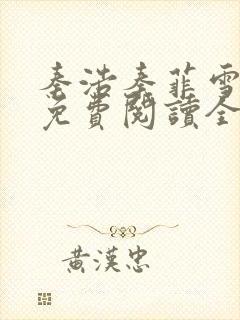 秦浩秦菲雪
免費閱讀全
黃漢忠